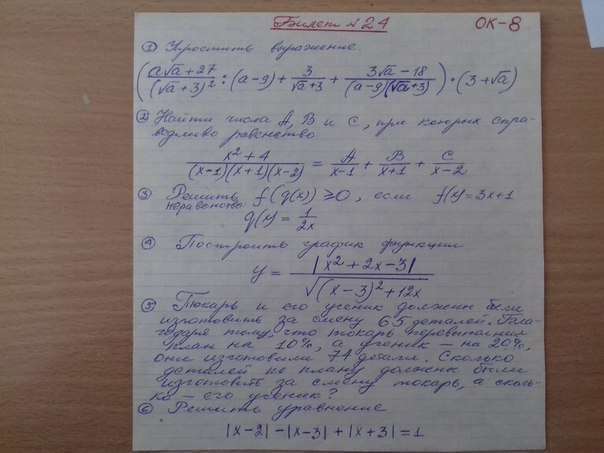 Билет № 24
ОК-8
① Упростить выражение
(a√a+27/(√a+3)² : (a-9) + 3/√a+3 + 3√a-18/(a-9)(√a+3)) · (3+√a)
② Найти числа A, B и C, при которых спра-
ведливо равенство
x²+4/(x-1)(x+1)(x-2) = A/x-1 + B/x+1 + C/x-2
③ Решить f(g(x)) ≥ 0, если f(x)=3x+1
неравенство
g(x) = 1/2x
④ Построить график функции
y = |x²+2x-3|/√(x-3)²+12x
⑤ Токарь и его ученик должны были
изготовить за смену 65 деталей. Бла-
годаря тому, что токарь перевыполнил
план на 10%, а ученик – на 20%,
они изготовили 74 детали. Сколько
деталей по плану должны были
изготовить за смену токарь, а сколь-
ко – его ученик?
⑥ Решить уравнение
|x-2|-|x-3|+|x+3|=1